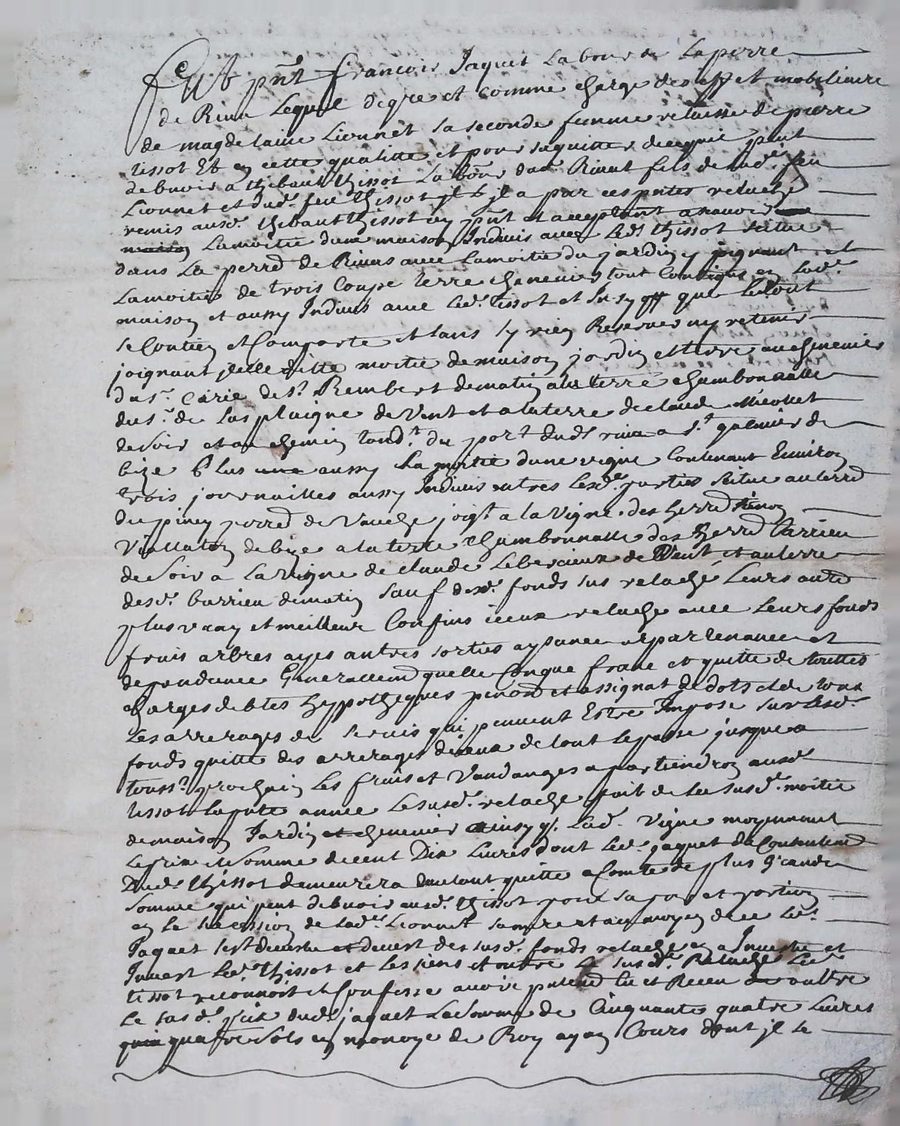 fut pnt francois Jaquet Laboureur de Laperre
de Rive Lequel degre et comme charge des effet mobiliaire
de magdelaine Lionnet sa seconde femme relaisse de pierre
tissot Et en cette qualitte et pour saquitter de ce quil peut
debvoir a thibaut thissot Labour dud. Rivat fils de lad. feu
Lionnet et dud. feu thissot Jl a par ces pntes relaché
remis aud. thibaut thissot cy pnt et acceptant a scavoir
maison Lamoitié dune maison Indivis avec Led. thissot située
dans La perre de Rivas avec Lamoitié du jardin y joignant et
Lamoitié de trois Coupe terre chenevier tout Contigus en Lad.
maison et aussy Indivis avec Led. tissot et Insy que Letout
se Contien et Comporte et sans sy rien Reserver ny retenir
joignant Icelle ditte moitié de maison jardin et terre au chenevier
du sr. Carié de st. Rembert de matin a la terre chambonnalle
du sr. de Las plaigne de vent et a la terre de claud Micollet
de soir et au chemin tend. du port dud. rive a st galmier de
bize Plus une aussy La moitié dune vigne Contenant Environ
trois journailles aussy Indivis entres Lesd. parties située au terroir
du piney perre de Vauche joigt a la Vigne des
Viallaton de bize a la terre chambonnalle des Barrieu
de soir a La vigne de claude Lebercieux de Vent et au terre
desd. barrieu de matin sauf desd. fonds sus relaché Leurs autre
plus vray et meilleur Confins iceux relaché avec Leurs fonds
fruis arbres ayes antres sorties aysance apartenance et
dependence Generallement quelle Conque franc et quitte de touttes
charges debtes hypotheques pension et assignat de dots et de tous
Les arrerages de servis qui peuvent Estre Imposé sur Lesd.
fonds quitte des arrerages diceux de tout Le passé jusque a
touss. prochain Les fruis et vandanges apartiendron aud.
tissot La pnte année Le susd. relaché fait de La susd. moitié
de maison Jardin et chenevier Ainsy q. Lad. vigne moyennant
Le prix et somme de cent Dix Livres dont Led. jaquet du Consentement
Dud. thissot demeurera dautant quitte a Comte de plus Grande
somme qui peut debvoir aud. thissot pour sa part et portion
en La succession de lad. Lionnet sa mere et au moyen de ce Led.
Jaquet sest devestu et devest des susd. fonds relaché en a Investu et
Invest Led. thissot et Les siens et outre Le susd. Relaché Led.
tissot reconnoit et Confesse avoir Eu et Receu de oultre
Le susd. prix dud. jaquet La somme de Cinquante quatre Livres
quatre sols en monoye de Roy ayan Cours dont jl se